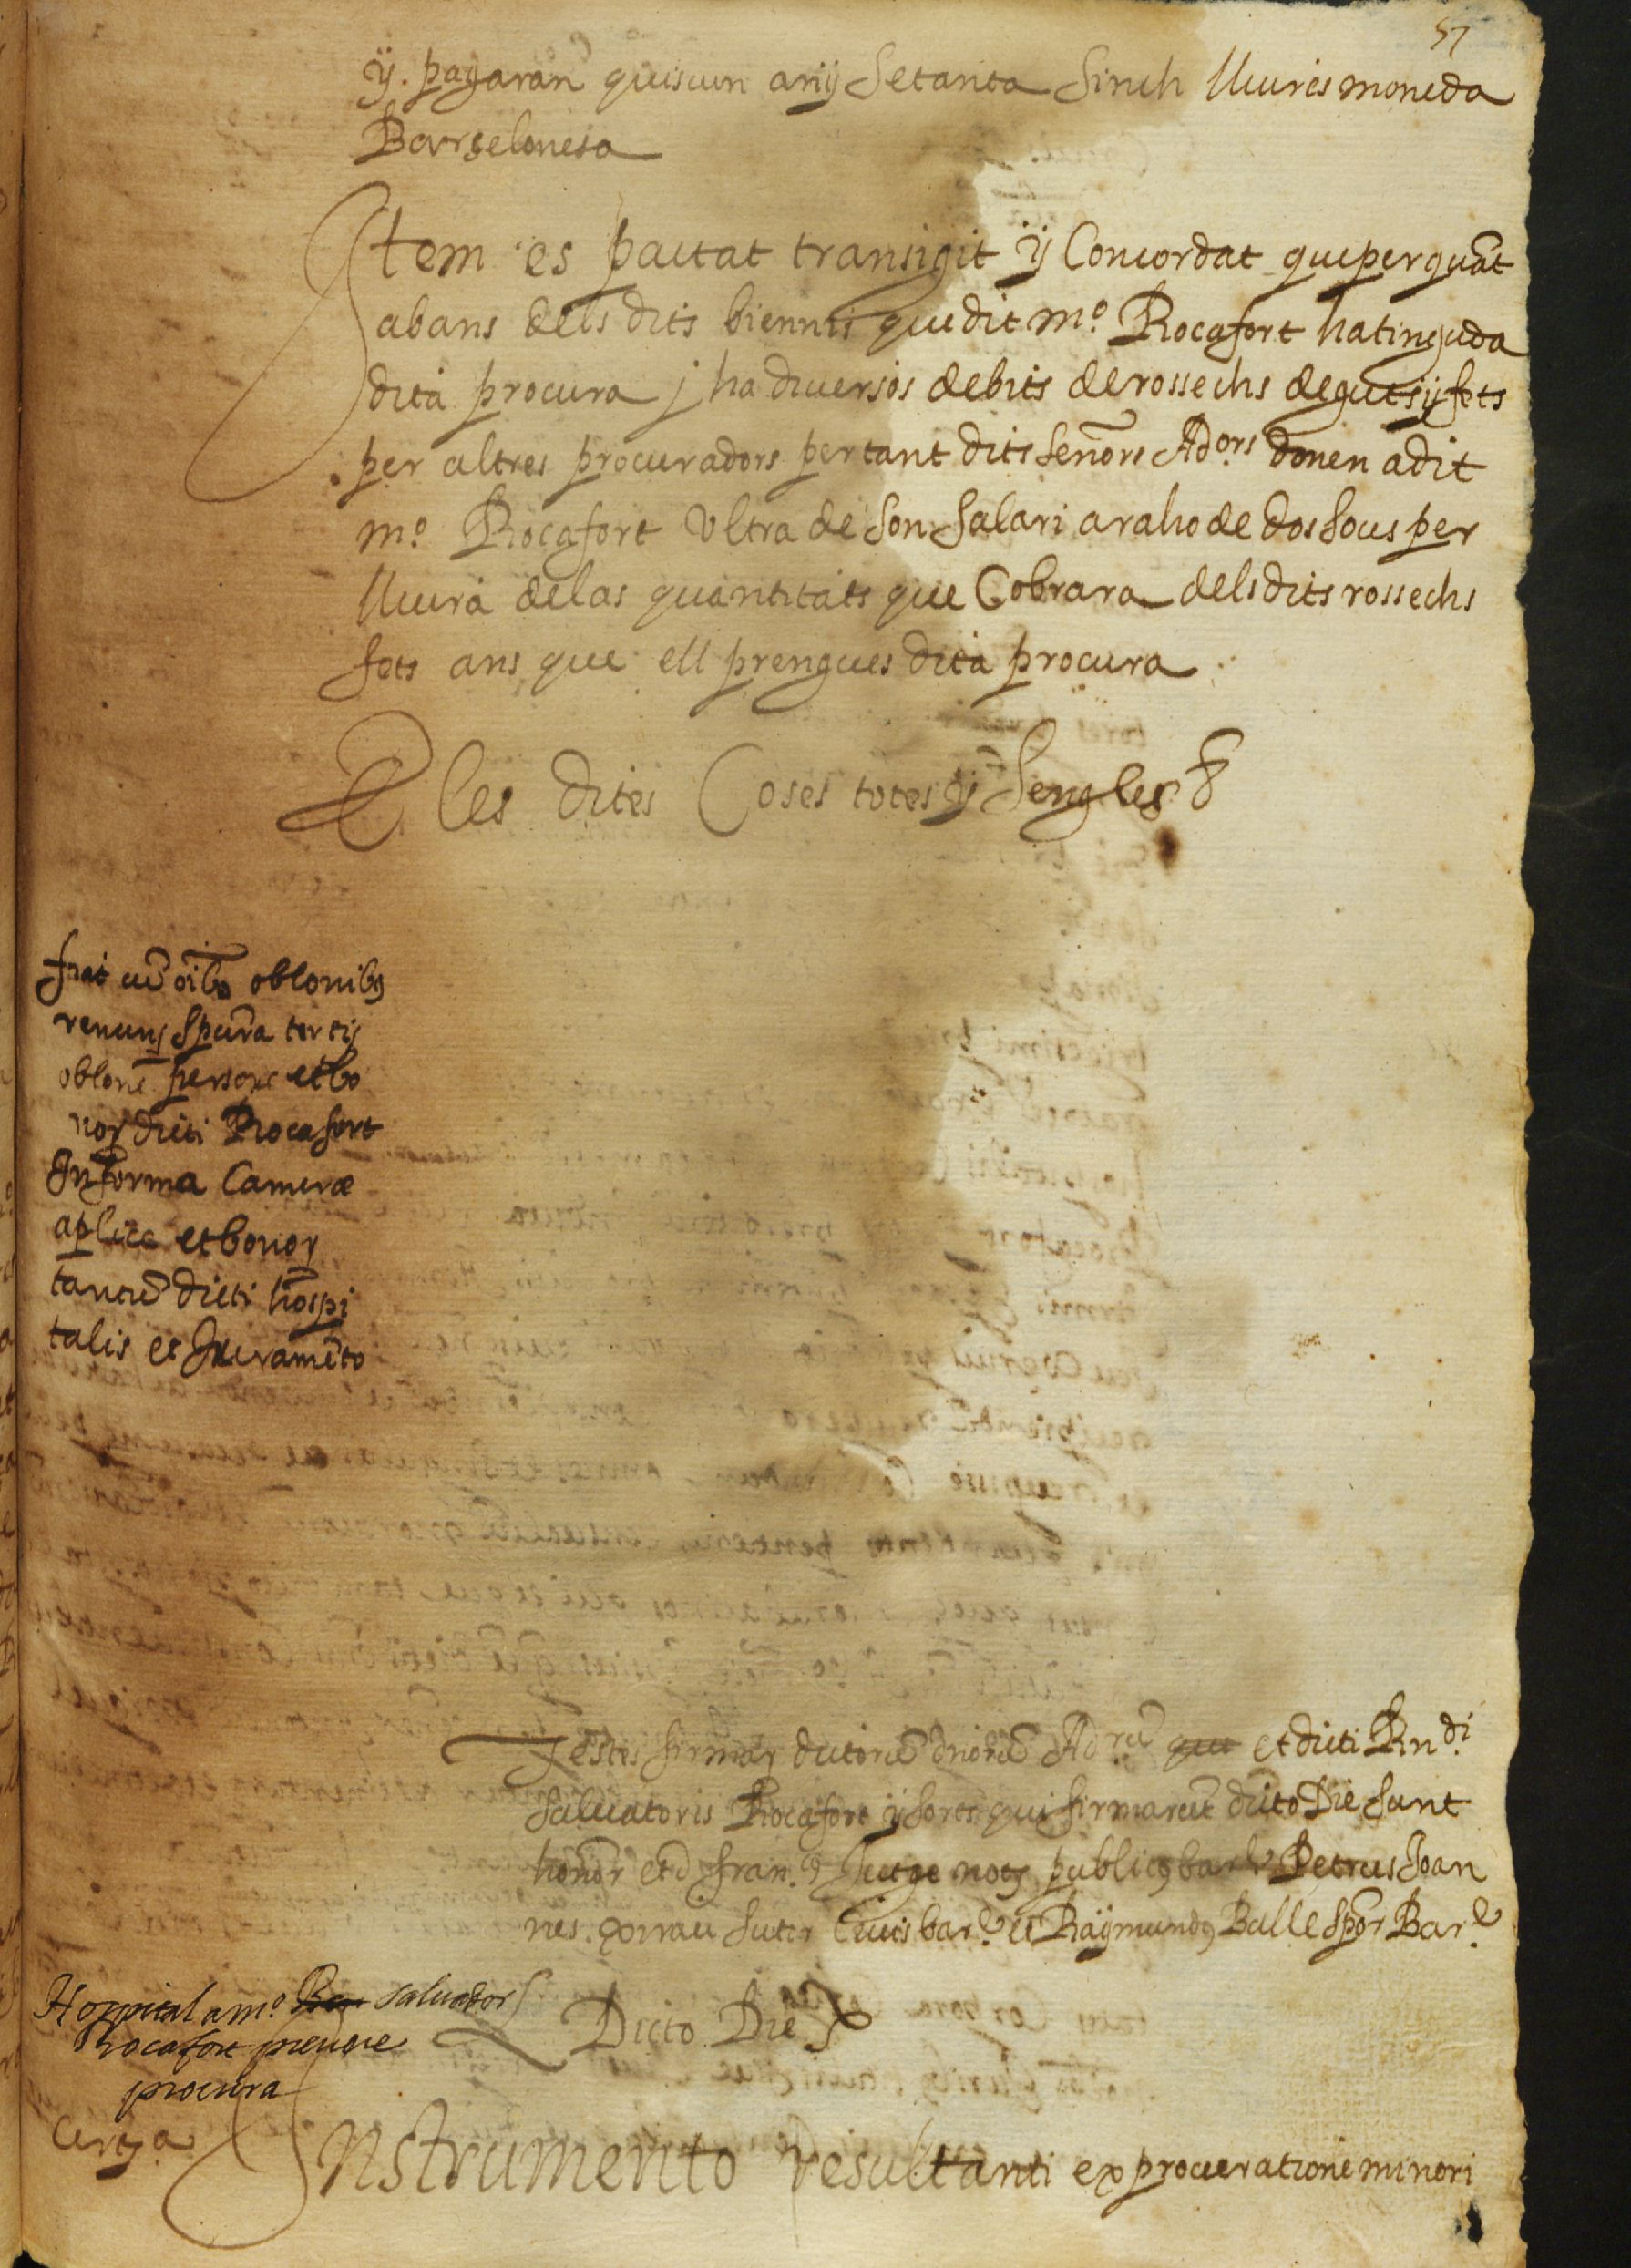 57
ÿ. pagaran quiscun anÿ Setanta Sinch lliures moneda
Barselonesa
Item es pactat transigit ÿ Concordat que per quãt
abans dels dits biennis que dit mº. Rocafort ha tinguda
dita procura j ha diversos debits de rossechs deguts ÿ fets
per altres procuradors per tant dits señors Ad.ors donen a dit
mº. Rocafort Ultra de Son Salari a raho de dos sous per
lliura de las quantitats que Cobrara dels dits rossechs
fets ans que ell prengues dita procura
E les dites Coses totes ÿ Sengles &
fiat cũ oĩbs oblonibs
renuns Spũra tertij
oblone persone et bo
nor dicti Rocafort
In forma Cameræ
aplice et bonor
tantũ dicti hospi
talis et Juramẽto
Testes firmar dictorũ dñorũ Ad.rũ que et dicti Rn.di
Salvatoris Rocafort ÿ sorts qui firmarũt dicto Die sunt
honor et d. fran.cs Jutge nots publics bar.e Petrus Joan
nes porrau sutor Civis bar.e et Raÿmunds Balle Spor Bar.e
Hospital a mº. Salvador
Rocafort prevere
procura
Dicto Die &
Certa
Instrumento resultanti ex procuratione minori